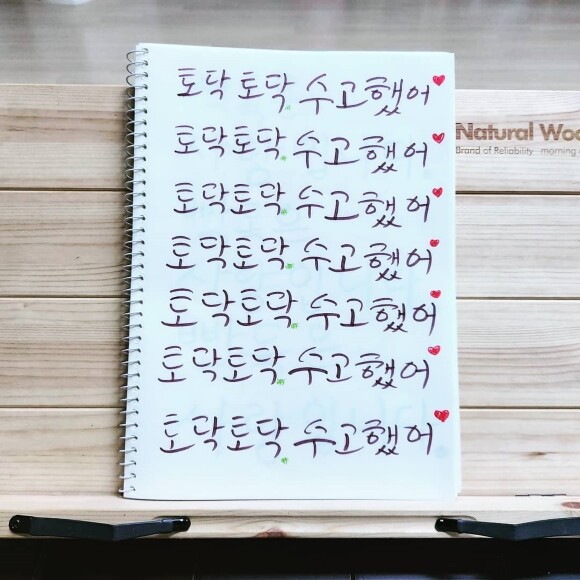 토닥토닥 수고했어
토닥토닥 수고했어
Natural Woo
Brand of Reliability morning
토닥토닥 수고했어
토닥토닥 수고했어
토닥토닥 수고했어
토닥토닥 수고했어
토닥토닥 수고했어